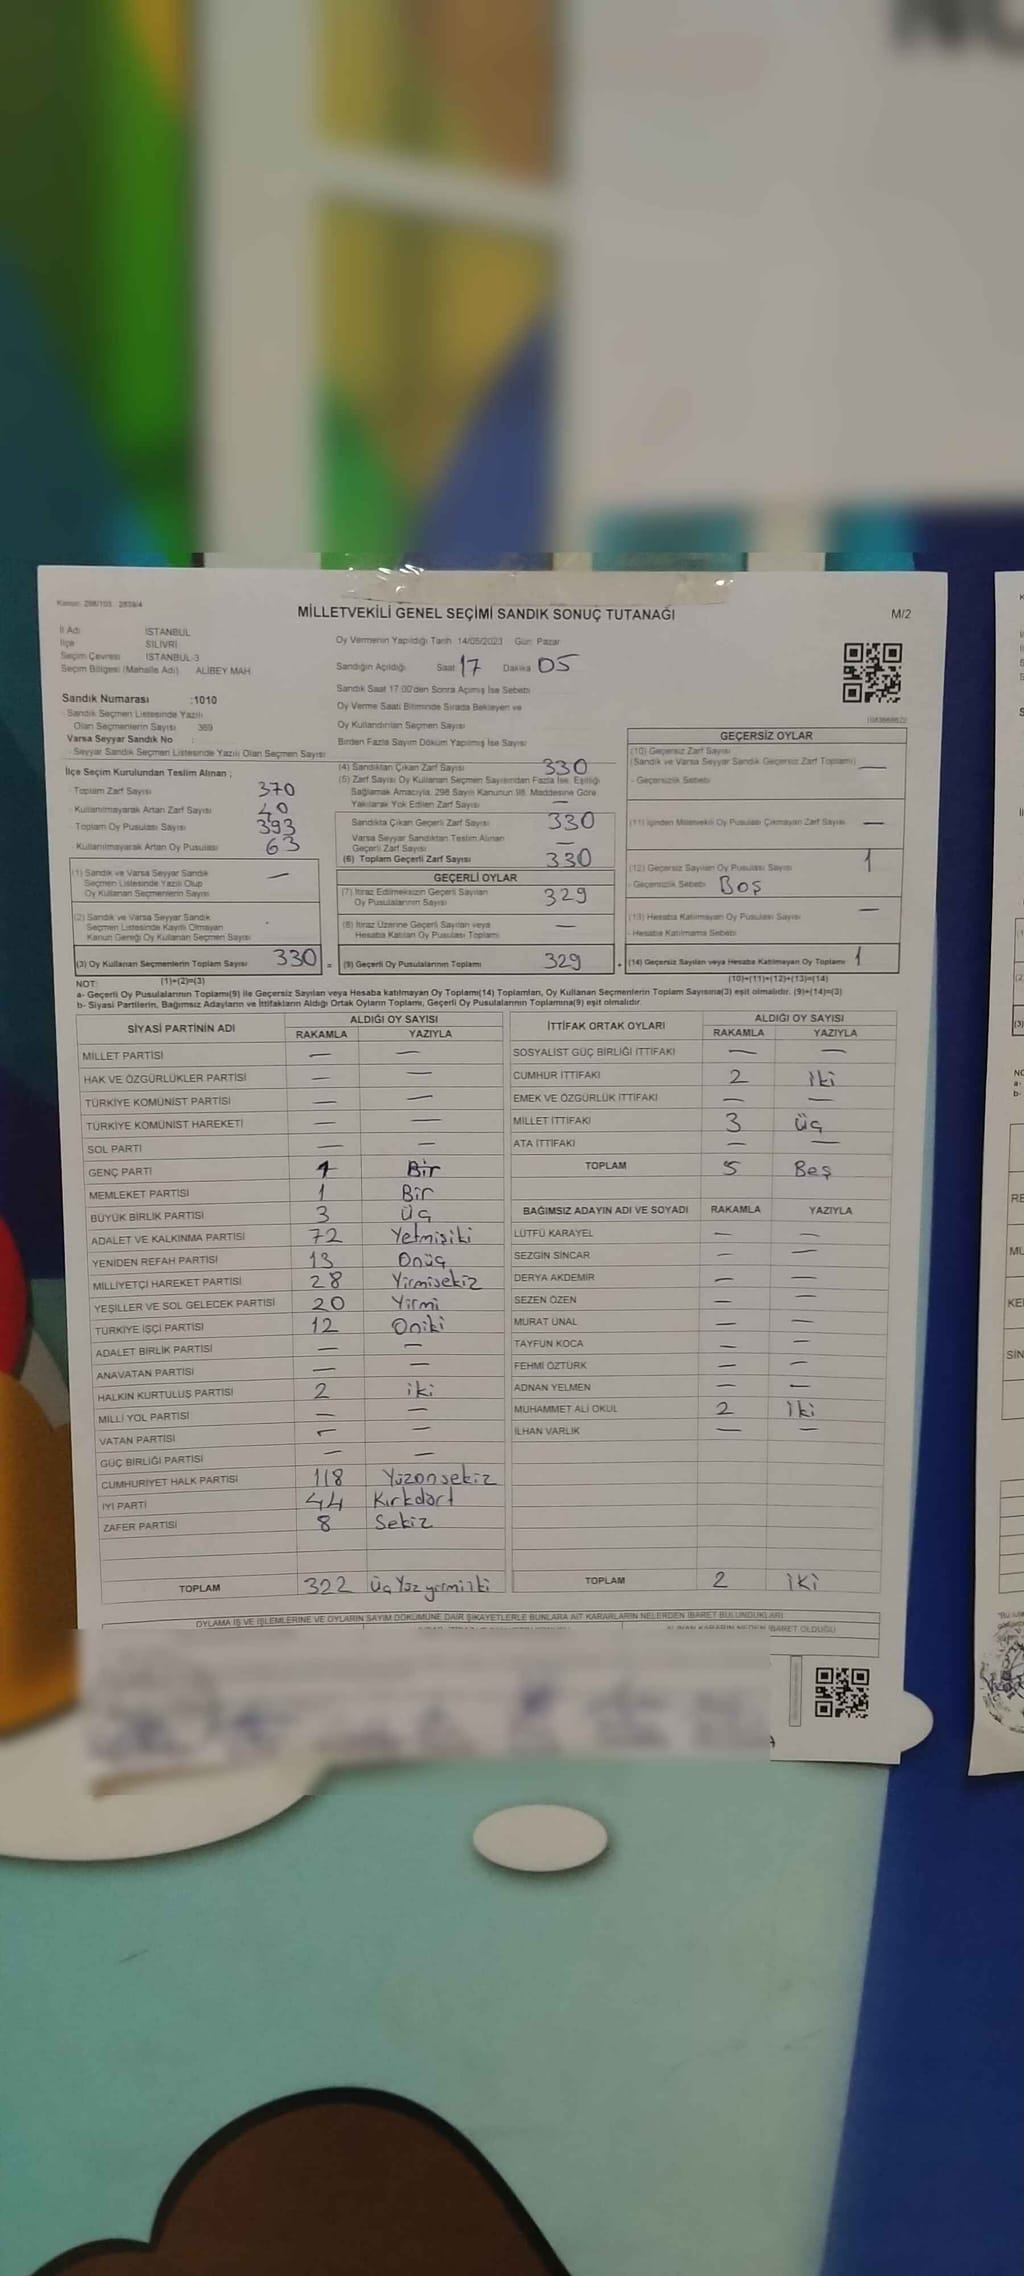 Kanun: 298/103 2839/4
MİLLETVEKİLİ GENEL SEÇİMİ SANDIK SONUÇ TUTANAĞI
M/2
İl Adı İSTANBUL
İlçe SİLİVRİ
Seçim Çevresi İSTANBUL-3
Seçim Bölgesi (Mahalle Adı) ALİBEY MAH
Oy Vermenin Yapıldığı Tarih 14/05/2023 Gün: Pazar
Sandığın Açıldığı Saat 17 Dakika 05
Sandık Saat 17:00'den Sonra Açılmış İse Sebebi
Oy Verme Saati Bitiminde Sırada Bekleyen ve
Oy Kullandırılan Seçmen Sayısı
Birden Fazla Sayım Döküm Yapılmış İse Sayısı
Sandık Numarası :1010
Sandık Seçmen Listesinde Yazılı
Olan Seçmenlerin Sayısı 369
Varsa Seyyar Sandık No :
Seyyar Sandık Seçmen Listesinde Yazılı Olan Seçmen Sayısı
İlçe Seçim Kurulundan Teslim Alınan ;
- Toplam Zarf Sayısı 370
- Kullanılmayarak Artan Zarf Sayısı 40
- Toplam Oy Pusulası Sayısı 393
- Kullanılmayarak Artan Oy Pusulası 63
(1) Sandık ve Varsa Seyyar Sandık —
Seçmen Listesinde Yazılı Olup
Oy Kullanan Seçmenlerin Sayısı
(2) Sandık ve Varsa Seyyar Sandık
Seçmen Listesinde Kayıtlı Olmayan
Kanun Gereği Oy Kullanan Seçmen Sayısı
(3) Oy Kullanan Seçmenlerin Toplam Sayısı 330 =
(1)+(2)=(3)
(4) Sandıktan Çıkan Zarf Sayısı 330
(5) Zarf Sayısı Oy Kullanan Seçmen Sayısından Fazla İse, Eşitliği
Sağlamak Amacıyla, 298 Sayılı Kanunun 98. Maddesine Göre
Yakılarak Yok Edilen Zarf Sayısı —
Sandıkta Çıkan Geçerli Zarf Sayısı 330
Varsa Seyyar Sandıktan Teslim Alınan
Geçerli Zarf Sayısı —
(6) Toplam Geçerli Zarf Sayısı 330
GEÇERLİ OYLAR
(7) İtiraz Edilmeksizin Geçerli Sayılan
Oy Pusulalarının Sayısı 329
(8) İtiraz Üzerine Geçerli Sayılan veya
Hesaba Katılan Oy Pusulası Toplamı —
(9) Geçerli Oy Pusulalarının Toplamı 329 +
GEÇERSİZ OYLAR
(10) Geçersiz Zarf Sayısı
(Sandık ve Varsa Seyyar Sandık Geçersiz Zarf Toplamı) —
- Geçersizlik Sebebi
(11) İçinden Milletvekili Oy Pusulası Çıkmayan Zarf Sayısı —
(12) Geçersiz Sayılan Oy Pusulası Sayısı 1
- Geçersizlik Sebebi Boş
(13) Hesaba Katılmayan Oy Pusulası Sayısı —
- Hesaba Katılmama Sebebi
(14) Geçersiz Sayılan veya Hesaba Katılmayan Oy Toplamı 1
(10)+(11)+(12)+(13)=(14)
NOT:
a- Geçerli Oy Pusulalarının Toplamı(9) ile Geçersiz Sayılan veya Hesaba katılmayan Oy Toplamı(14) Toplamları, Oy Kullanan Seçmenlerin Toplam Sayısına(3) eşit olmalıdır. (9)+(14)=(3)
b- Siyasi Partilerin, Bağımsız Adayların ve İttifakların Aldığı Ortak Oyların Toplamı, Geçerli Oy Pusulalarının Toplamına(9) eşit olmalıdır.
SİYASİ PARTİNİN ADI ALDIĞI OY SAYISI
RAKAMLA YAZIYLA
MİLLET PARTİSİ — —
HAK VE ÖZGÜRLÜKLER PARTİSİ — —
TÜRKİYE KOMÜNİST PARTİSİ — —
TÜRKİYE KOMÜNİST HAREKETİ — —
SOL PARTİ — —
GENÇ PARTİ 1 Bir
MEMLEKET PARTİSİ 1 Bir
BÜYÜK BİRLİK PARTİSİ 3 Üç
ADALET VE KALKINMA PARTİSİ 72 Yetmişiki
YENİDEN REFAH PARTİSİ 13 Onüç
MİLLİYETÇİ HAREKET PARTİSİ 28 Yirmisekiz
YEŞİLLER VE SOL GELECEK PARTİSİ 20 Yirmi
TÜRKİYE İŞÇİ PARTİSİ 12 Oniki
ADALET BİRLİK PARTİSİ — —
ANAVATAN PARTİSİ — —
HALKIN KURTULUŞ PARTİSİ 2 iki
MİLLİ YOL PARTİSİ — —
VATAN PARTİSİ — —
GÜÇ BİRLİĞİ PARTİSİ — —
CUMHURİYET HALK PARTİSİ 118 Yüzonsekiz
İYİ PARTİ 44 Kırkdört
ZAFER PARTİSİ 8 Sekiz
TOPLAM 322 Üç Yüz yirmi iki
İTTİFAK ORTAK OYLARI ALDIĞI OY SAYISI
RAKAMLA YAZIYLA
SOSYALİST GÜÇ BİRLİĞİ İTTİFAKI — —
CUMHUR İTTİFAKI 2 iki
EMEK VE ÖZGÜRLÜK İTTİFAKI — —
MİLLET İTTİFAKI 3 üç
ATA İTTİFAKI — —
TOPLAM 5 Beş
BAĞIMSIZ ADAYIN ADI VE SOYADI RAKAMLA YAZIYLA
LÜTFÜ KARAYEL — —
SEZGİN SİNCAR — —
DERYA AKDEMİR — —
SEZEN ÖZEN — —
MURAT ÜNAL — —
TAYFUN KOCA — —
FEHMİ ÖZTÜRK — —
ADNAN YELMEN — —
MUHAMMET ALİ OKUL 2 iki
İLHAN VARLIK — —
TOPLAM 2 iki
OYLAMA İŞ VE İŞLEMLERİNE VE OYLARIN SAYIM DÖKÜMÜNE DAİR ŞİKAYETLERLE BUNLARA AİT KARARLARIN NELERDEN İBARET BULUNDUKLARI
ALINAN KARARIN NEDEN İBARET OLDUĞU